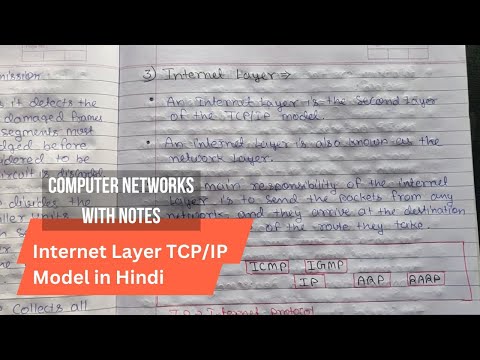 mission
s it detects the
damaged frames
segments must
dged before
idered to be
ircuit is discard
divides the
ller units
Collects all
3) Internet Layer ⇒
• An Internet Layer is the second layer
of the TCP/IP model.
• An Internet Layer is also known as the
network layer.
main responsibility of the internet
layer is to send the packets from any
network, and they arrive at the destination
of the route they take.
ICMP IGMP
IP ARP RARP
IP : Internet Protocol
COMPUTER NETWORKS
WITH NOTES
Internet Layer TCP/IP
Model in Hindi